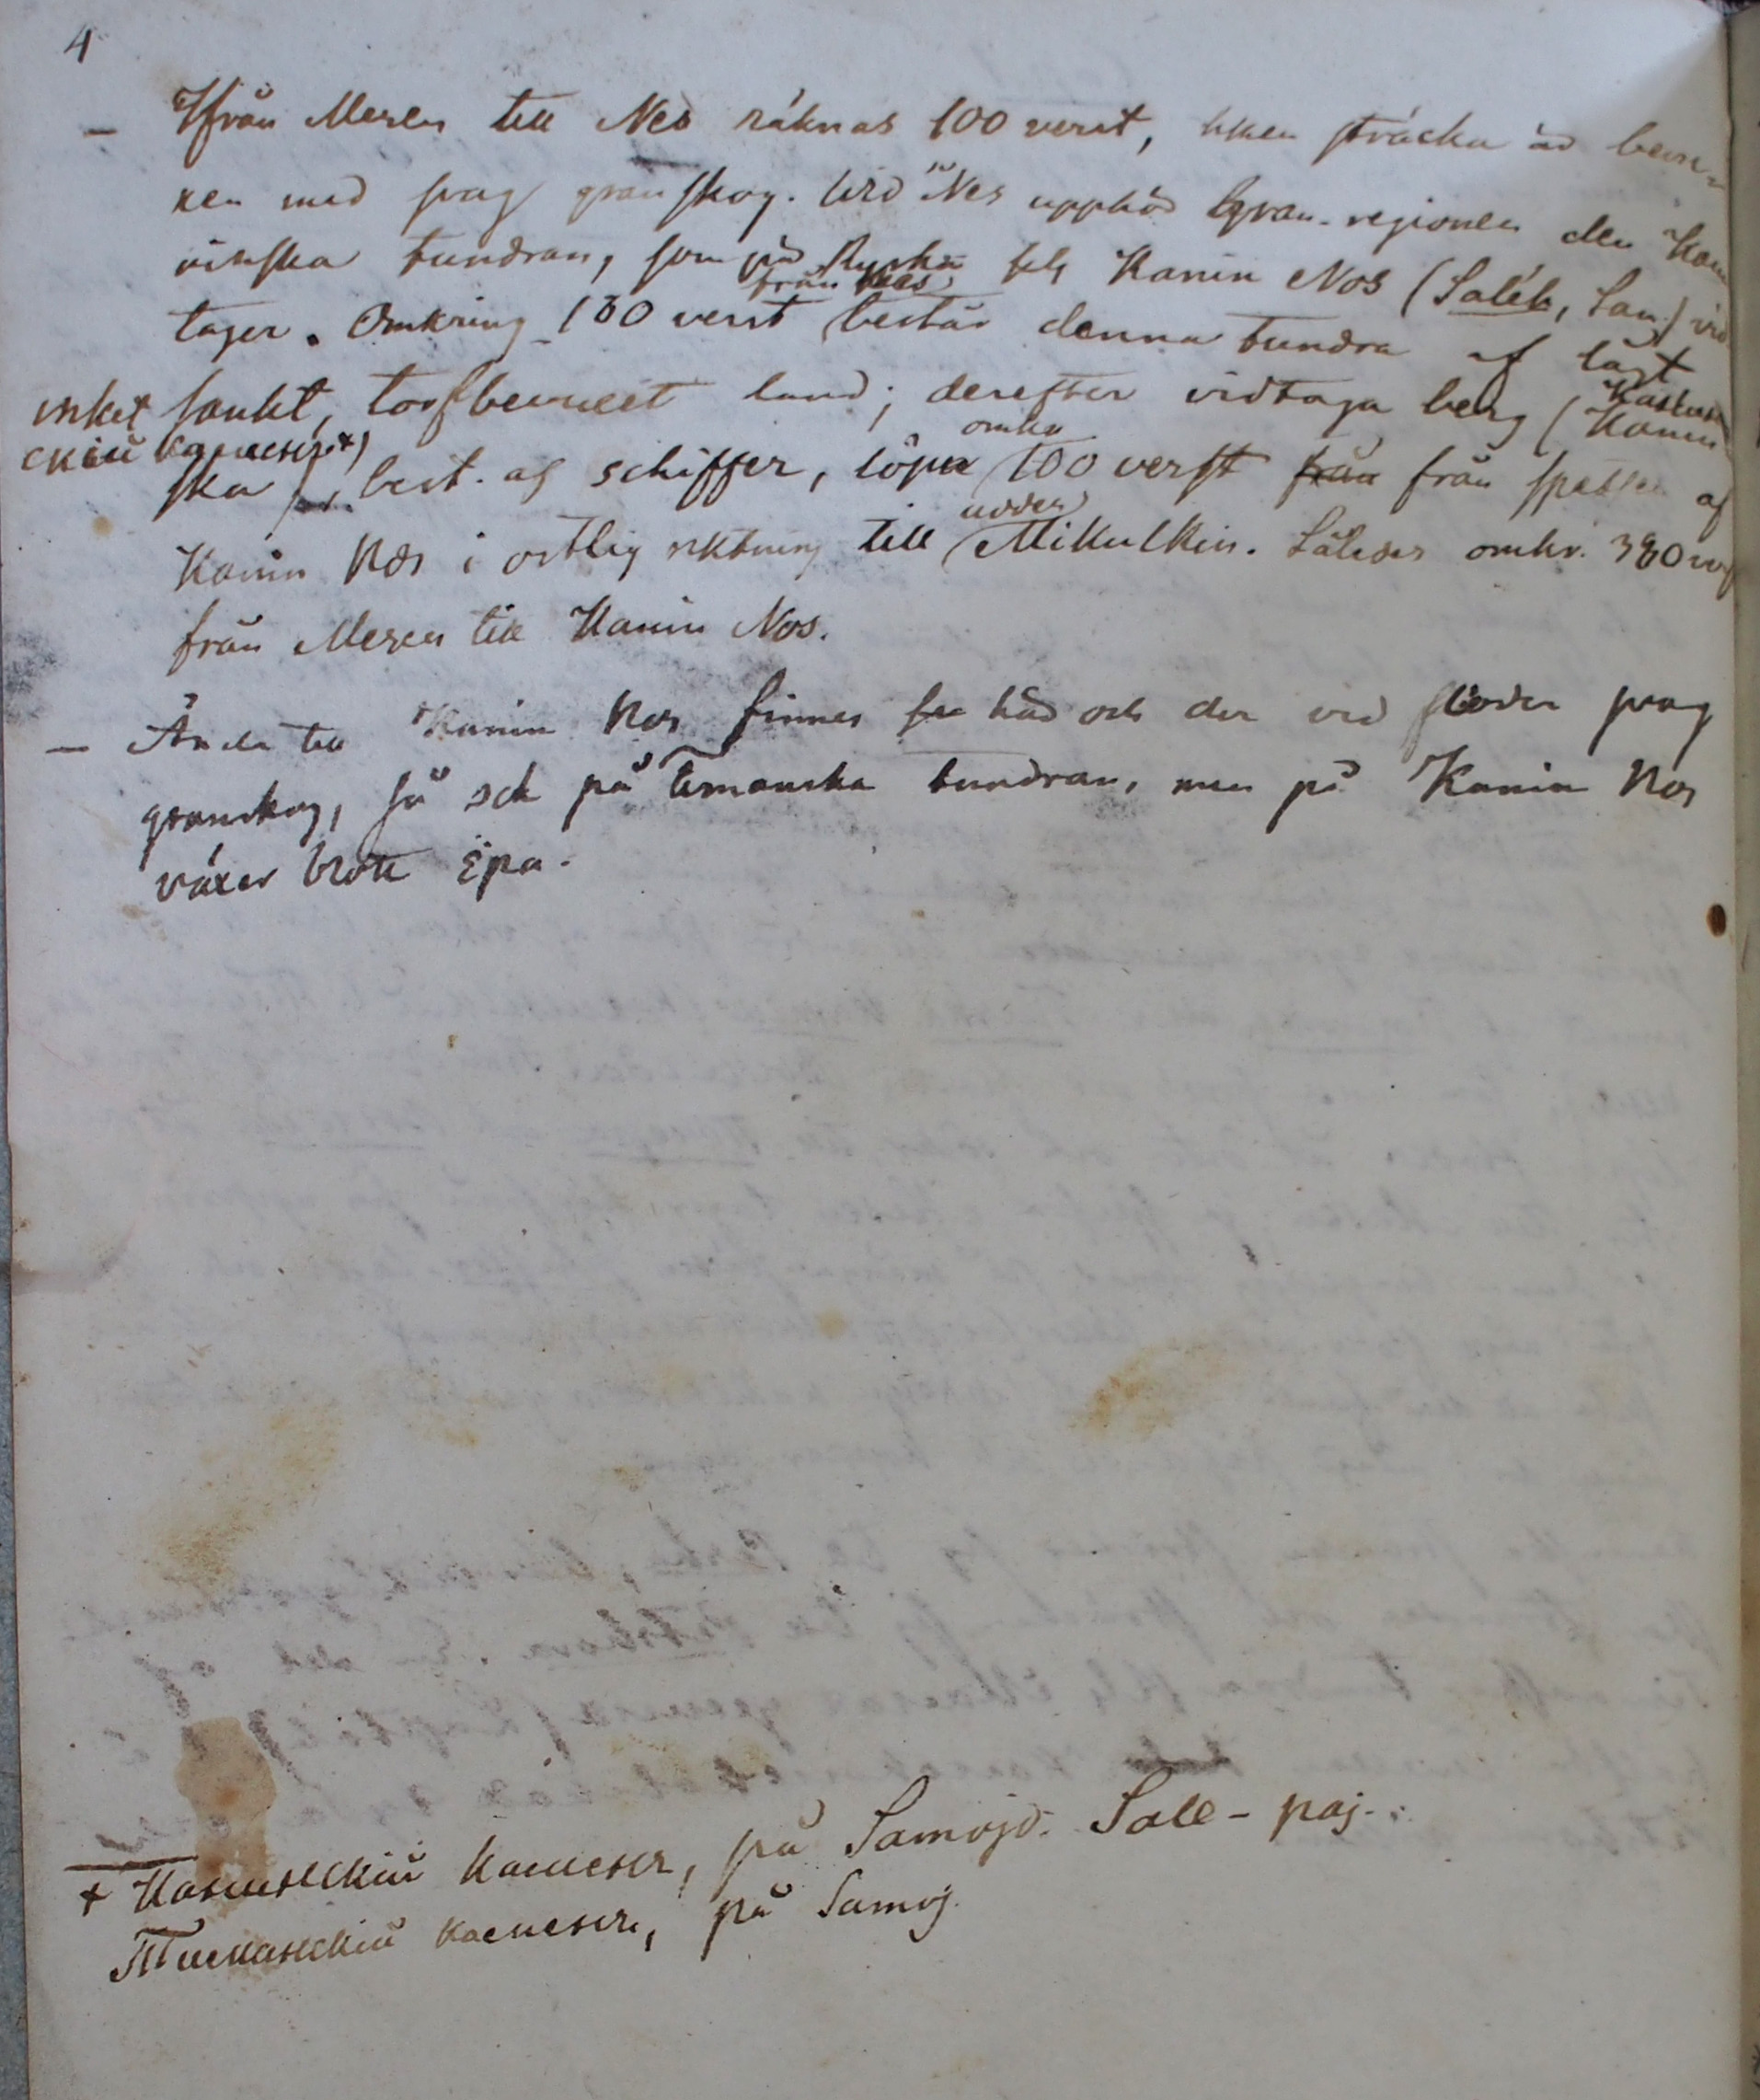 4
— Ifrån Mesen till Nes räknas 100 verst, hvilken sträcka är bevu-
xen med svag granskog. Wid Nes upphör gran-regionen den Kani
ninska tundran, som på Ryska heter Kanin Nos (Saléh, Sam.) vid
tager. Omkring 180 verst från Nes består denna tundra af lågt
mycket sankt, torfbevuxet land; derefter vidtaga berg (Kanin
скій камень +)
ska best. af schiffer, löpa omkr 100 verst från spetsen af
Kanin Nos i ostlig riktning till udden Mikulkin. Således omkr. 380
från Mesen till Kanin Nos.
— Ända till Kanin Nos finnes här och der vid floder svag
granskog, så och på Timanska tundran, men på Kanin Nos
växer blott Ëpa.
+ Канинскій камень, på Samojd. Sale-paj.
Тиманскій камень, på Samoj.